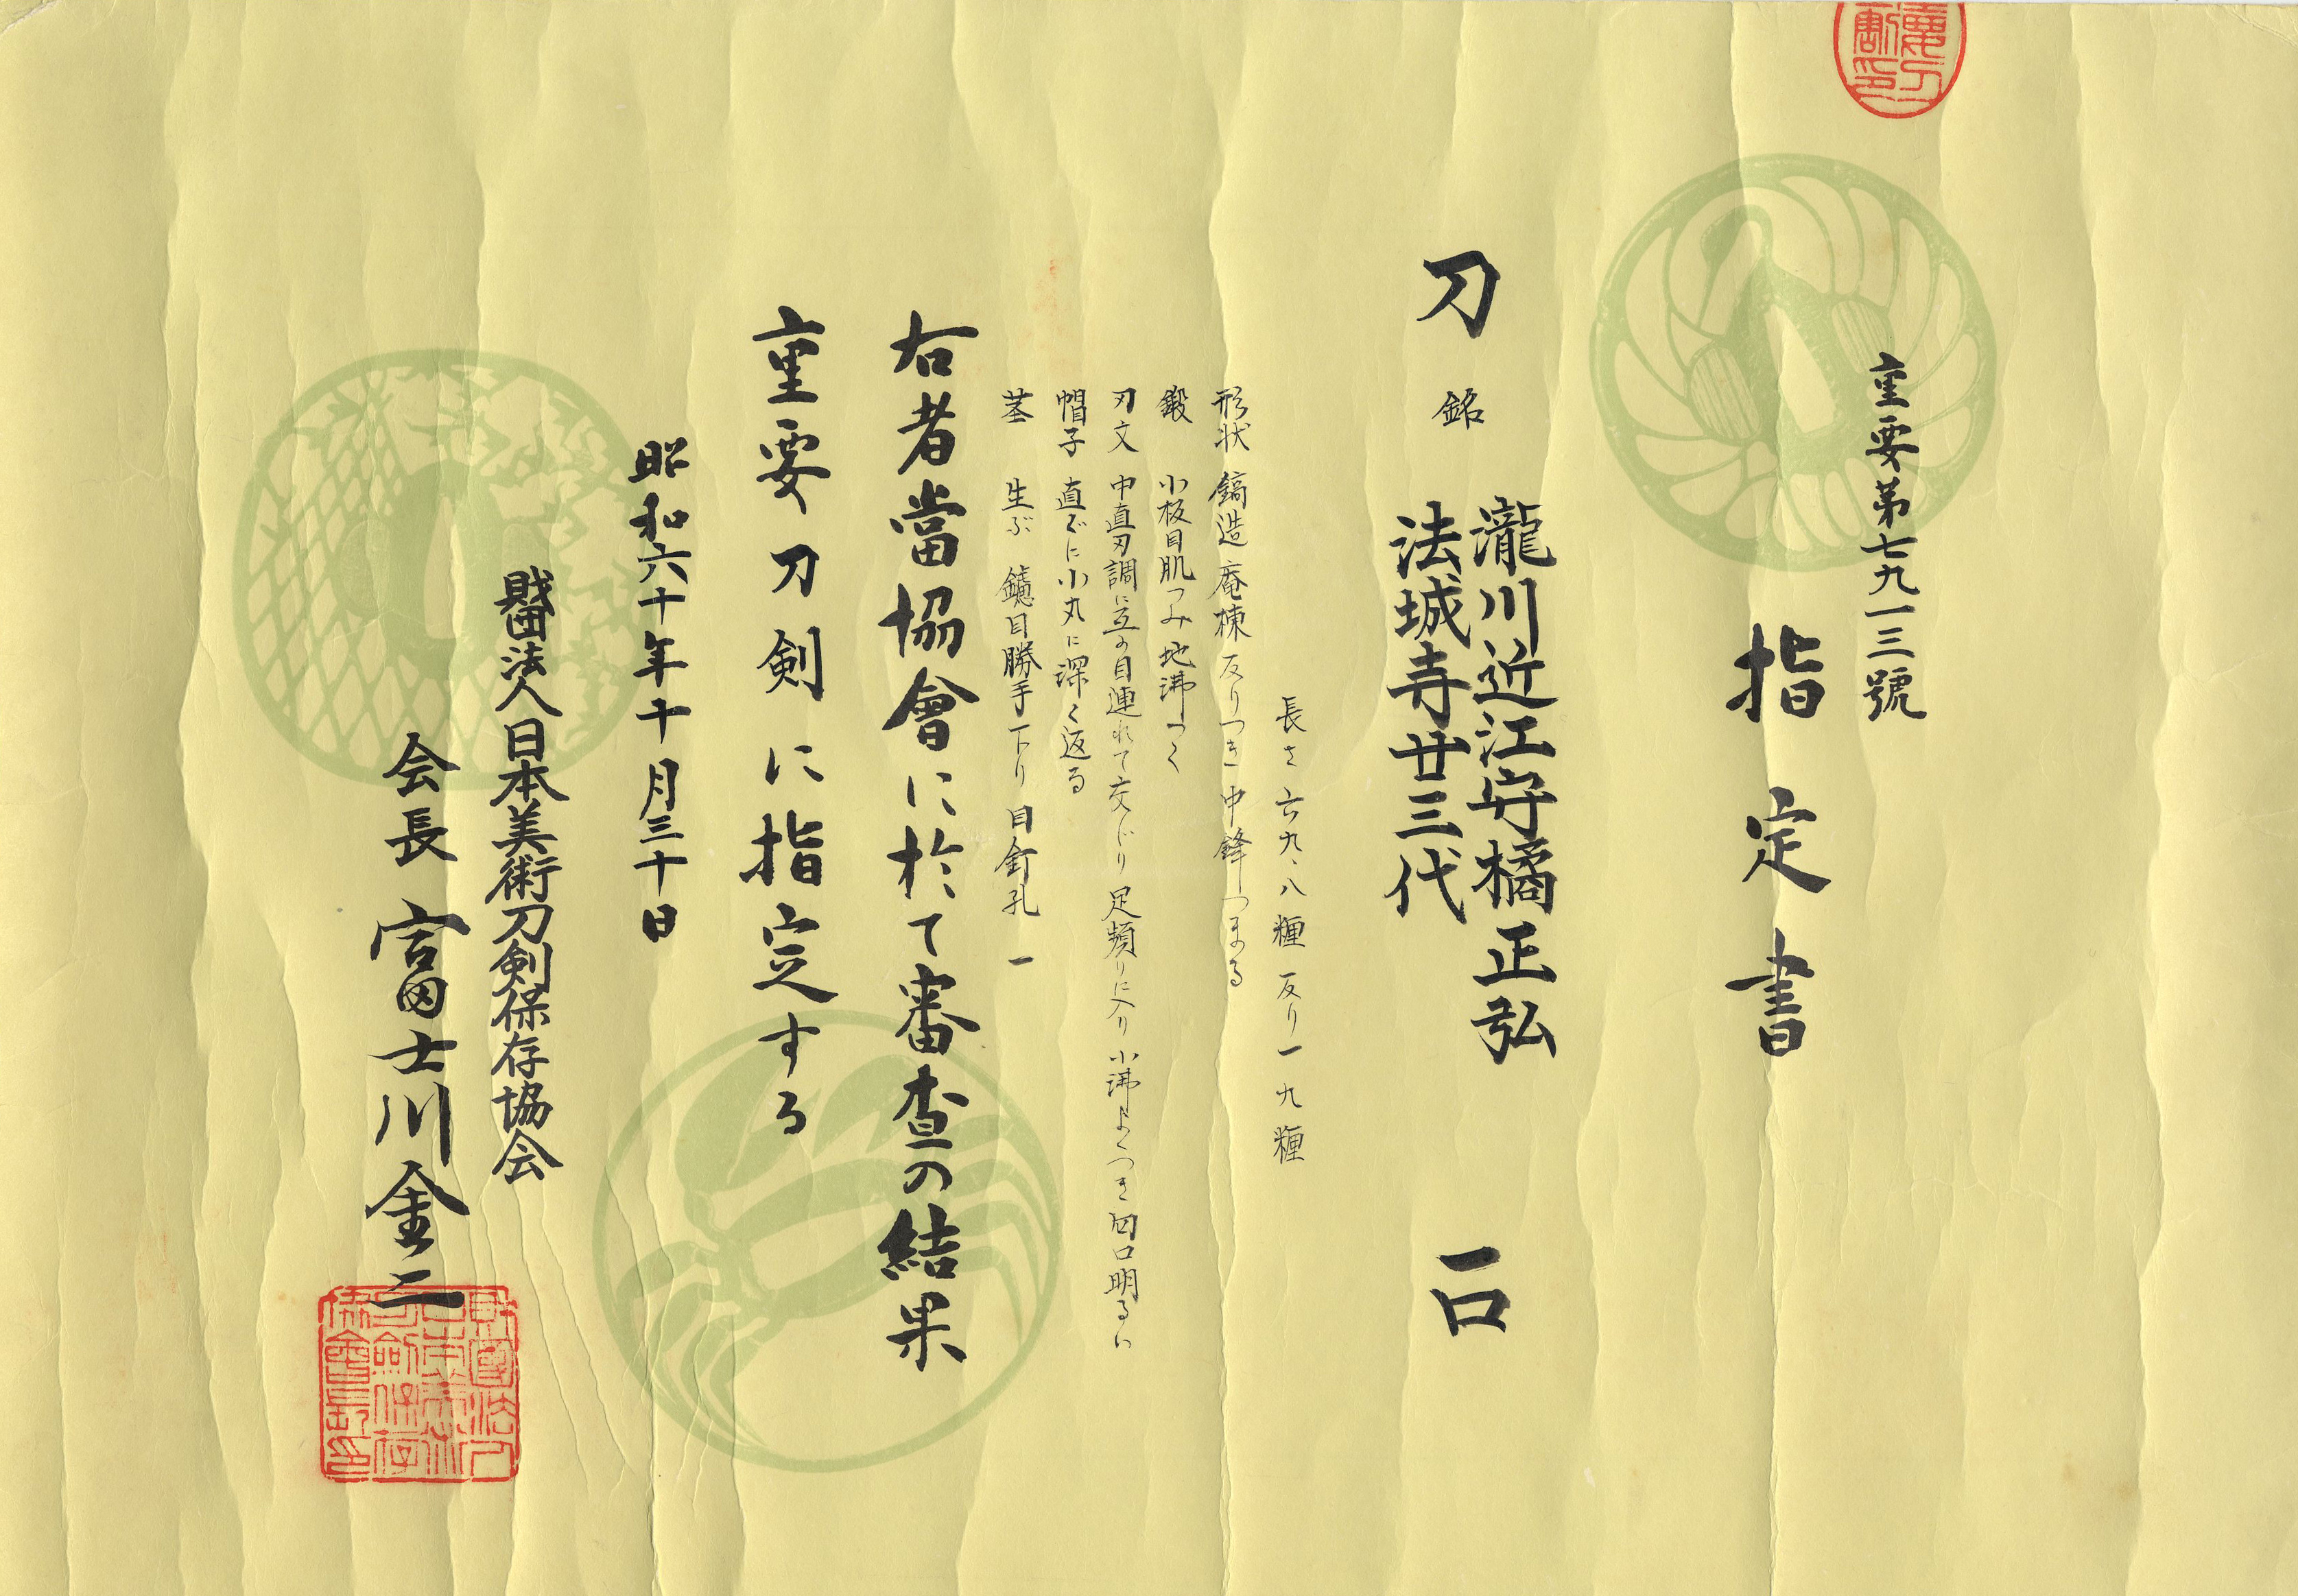 重要第七九一三號
指定書
刀 銘 瀧川近江守橘正弘
法城寺廿三代 一口
長さ 六九、八糎 反り 一、九糎
形状 鎬造 庵棟 反りつき 中鋒つまる
鍛 小板目肌つみ 地沸つく
刃文 中直刃調に互の目連れて交じり 足頻りに入り 小沸よくつき 匂口明るい
帽子 直ぐに小丸に深く返る
茎 生ぶ 鑢目勝手下り 目釘孔一
右者當協會に於て審査の結果
重要刀剣に指定する
昭和六十年十月三十日
財団法人日本美術刀剣保存協会
会長 富士川金二